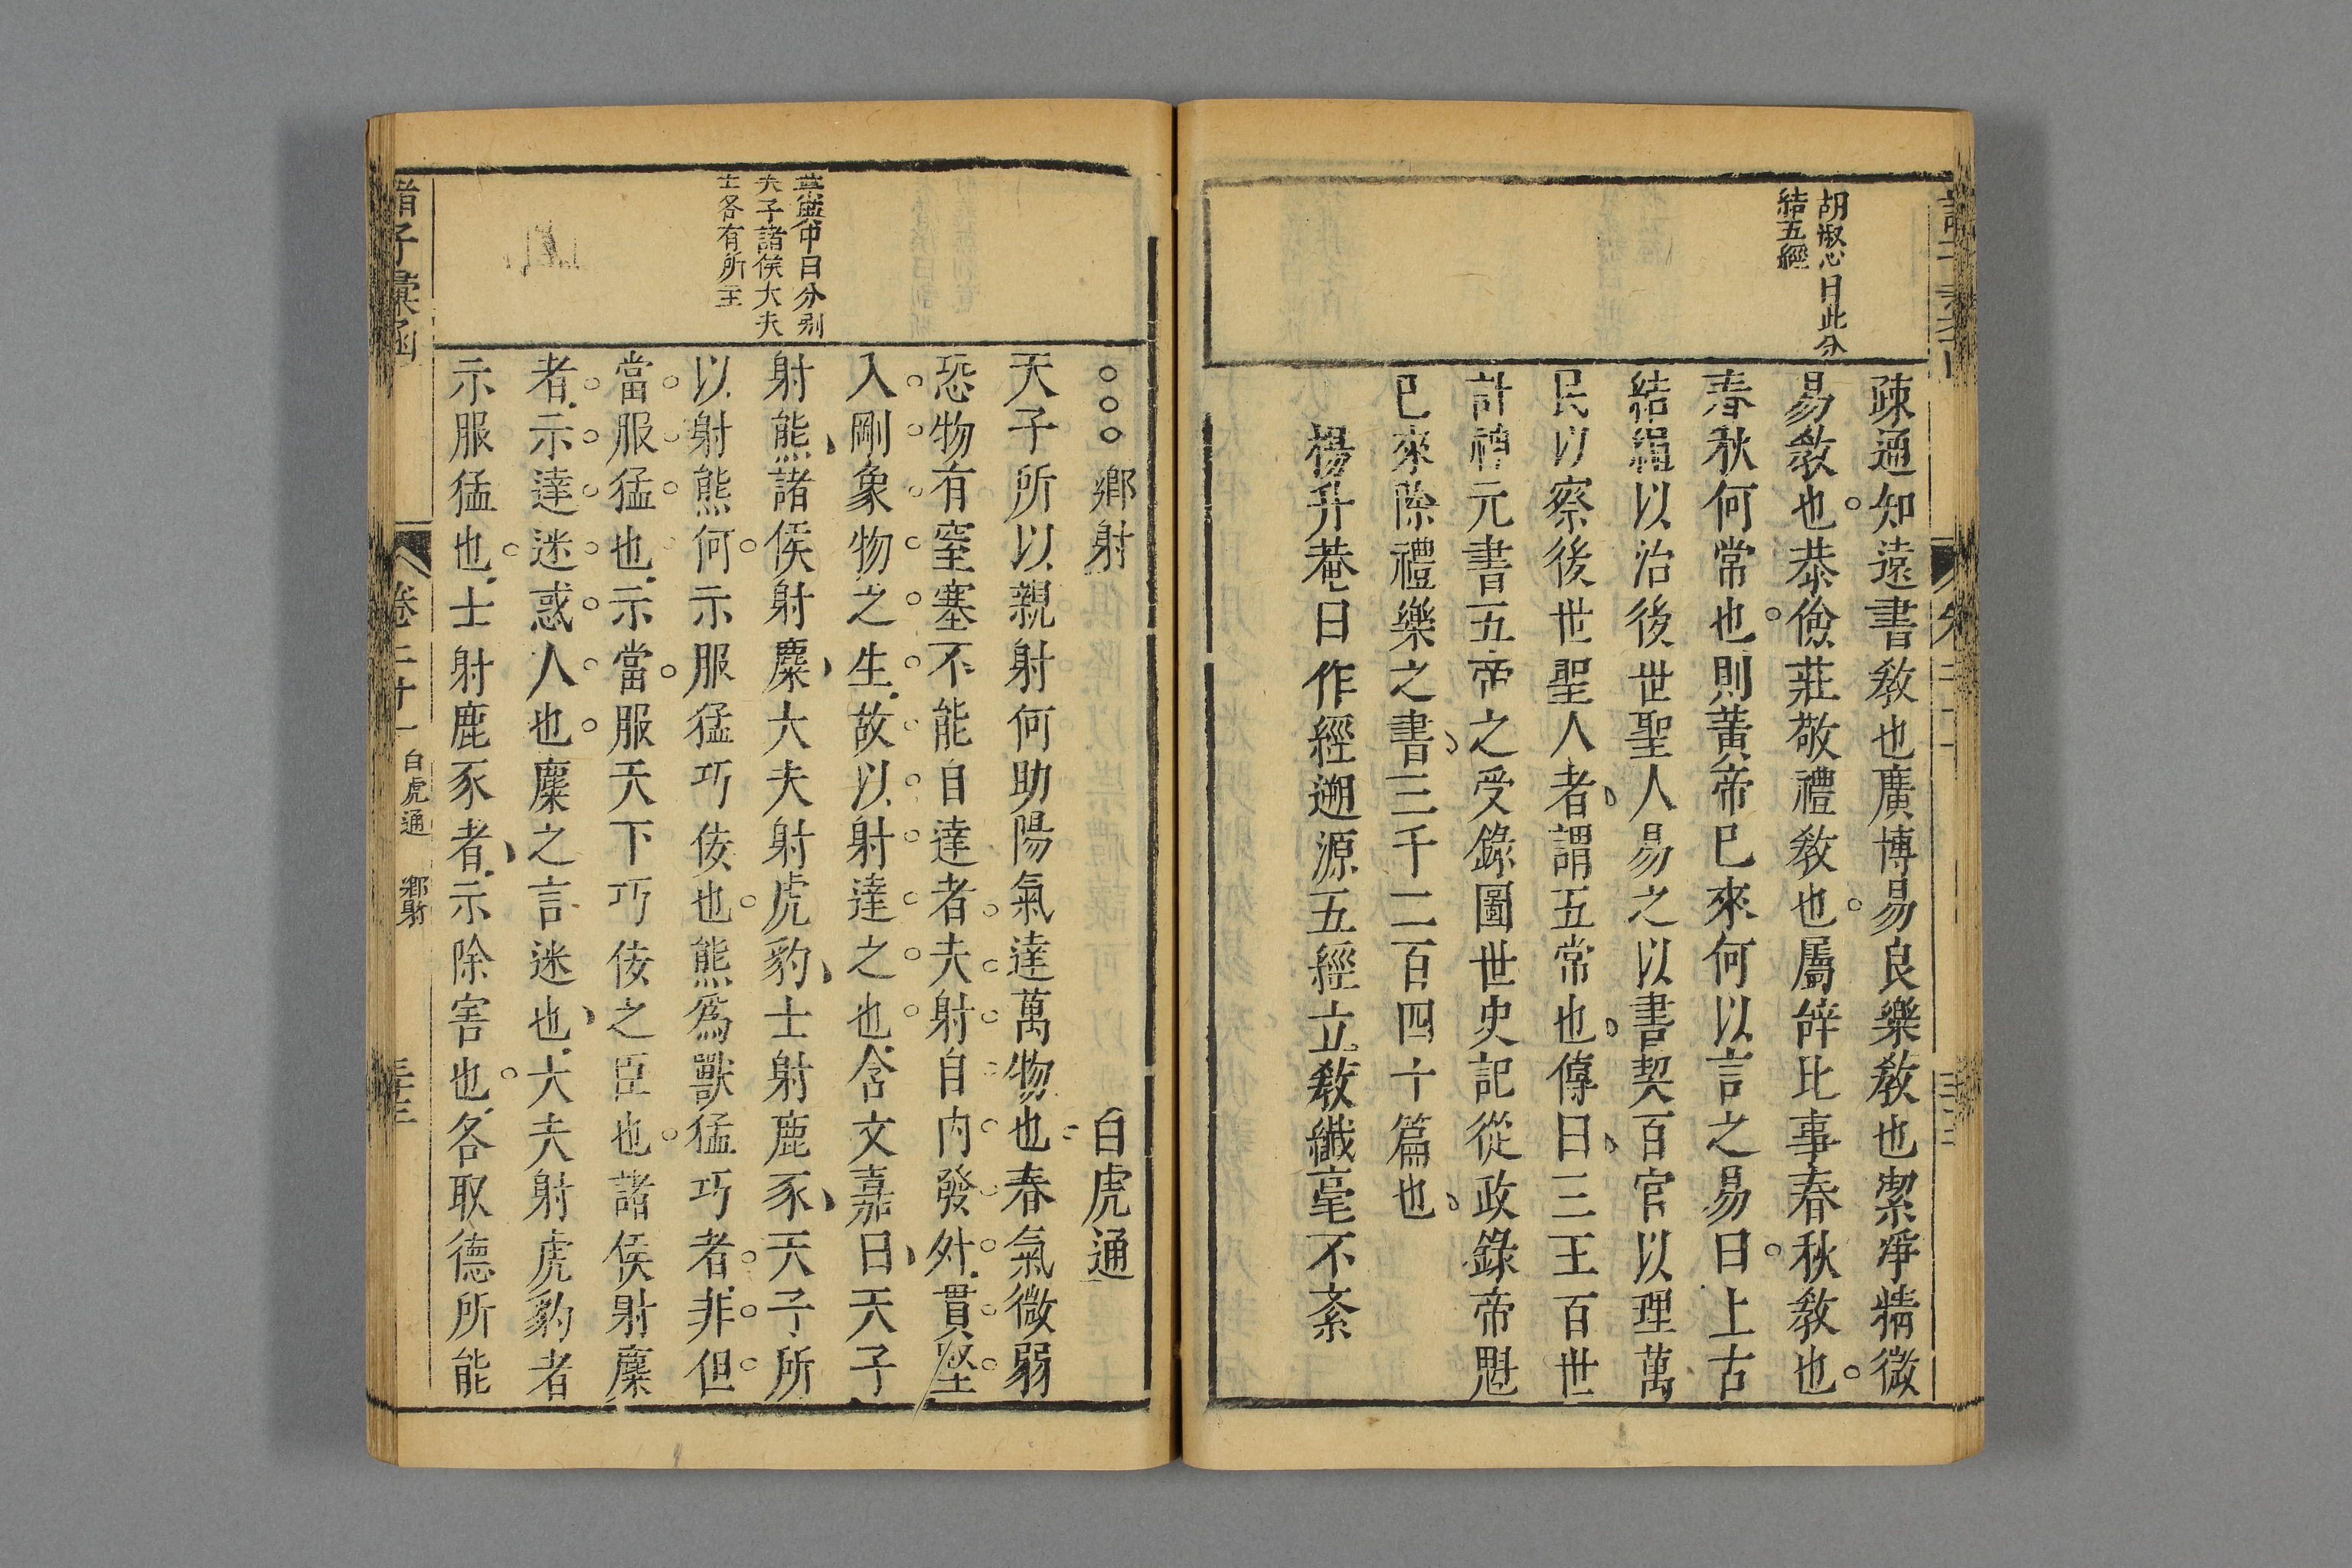 胡淑心曰此分
結五經
疎通知遠書敎也廣博易良樂敎也潔淨精微
易敎也恭儉莊敬禮敎也屬辭比事春秋敎也
春秋何常也則黃帝已來何以言之易曰上古
結繩以治後世聖人易之以書契百官以理萬
民以察後世聖人者謂五常也傳曰三王百世
計神元書五帝之受錄圖世史記從政錄帝魁
已來除禮樂之書三千二百四十篇也
楊升菴曰作經遡源五經立敎纖毫不紊
○○○鄉射　白虎通
曰分別
天子諸侯大夫
士各有所主
天子所以親射何助陽氣達萬物也春氣微弱
恐物有窒塞不能自達者夫射自內發外貫堅
入剛象物之生故以射達之也含文嘉曰天子
射熊諸侯射麋大夫射虎豹士射鹿豕天子所
以射熊何示服猛巧佞也熊爲獸猛巧者非但
當服猛也示當服天下巧佞之臣也諸侯射麋
者示達迷惑人也麋之言迷也大夫射虎豹者
示服猛也士射鹿豕者示除害也各取德所能
諸子彙函
卷二十一
白虎通
鄉射